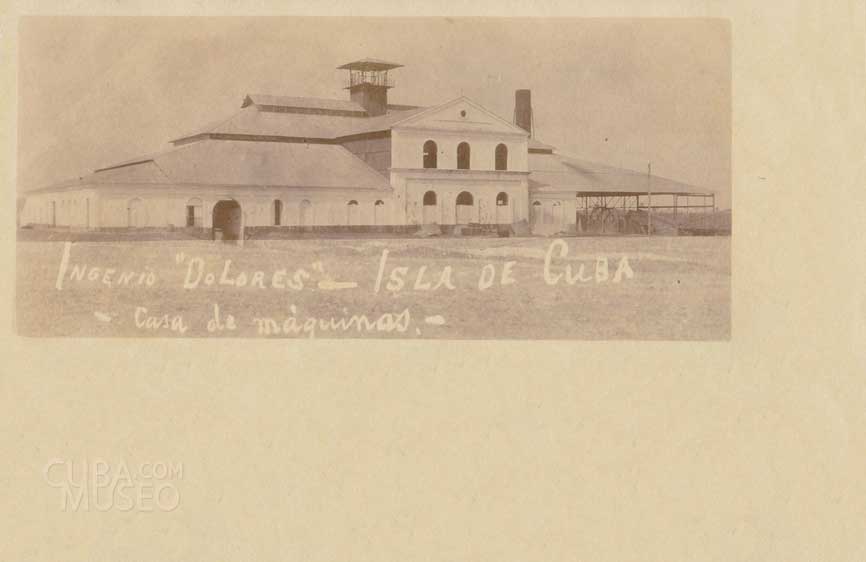 Ingenio "Dolores" – Isla de Cuba
- Casa de máquinas. -
CUBA.COM
MUSEO